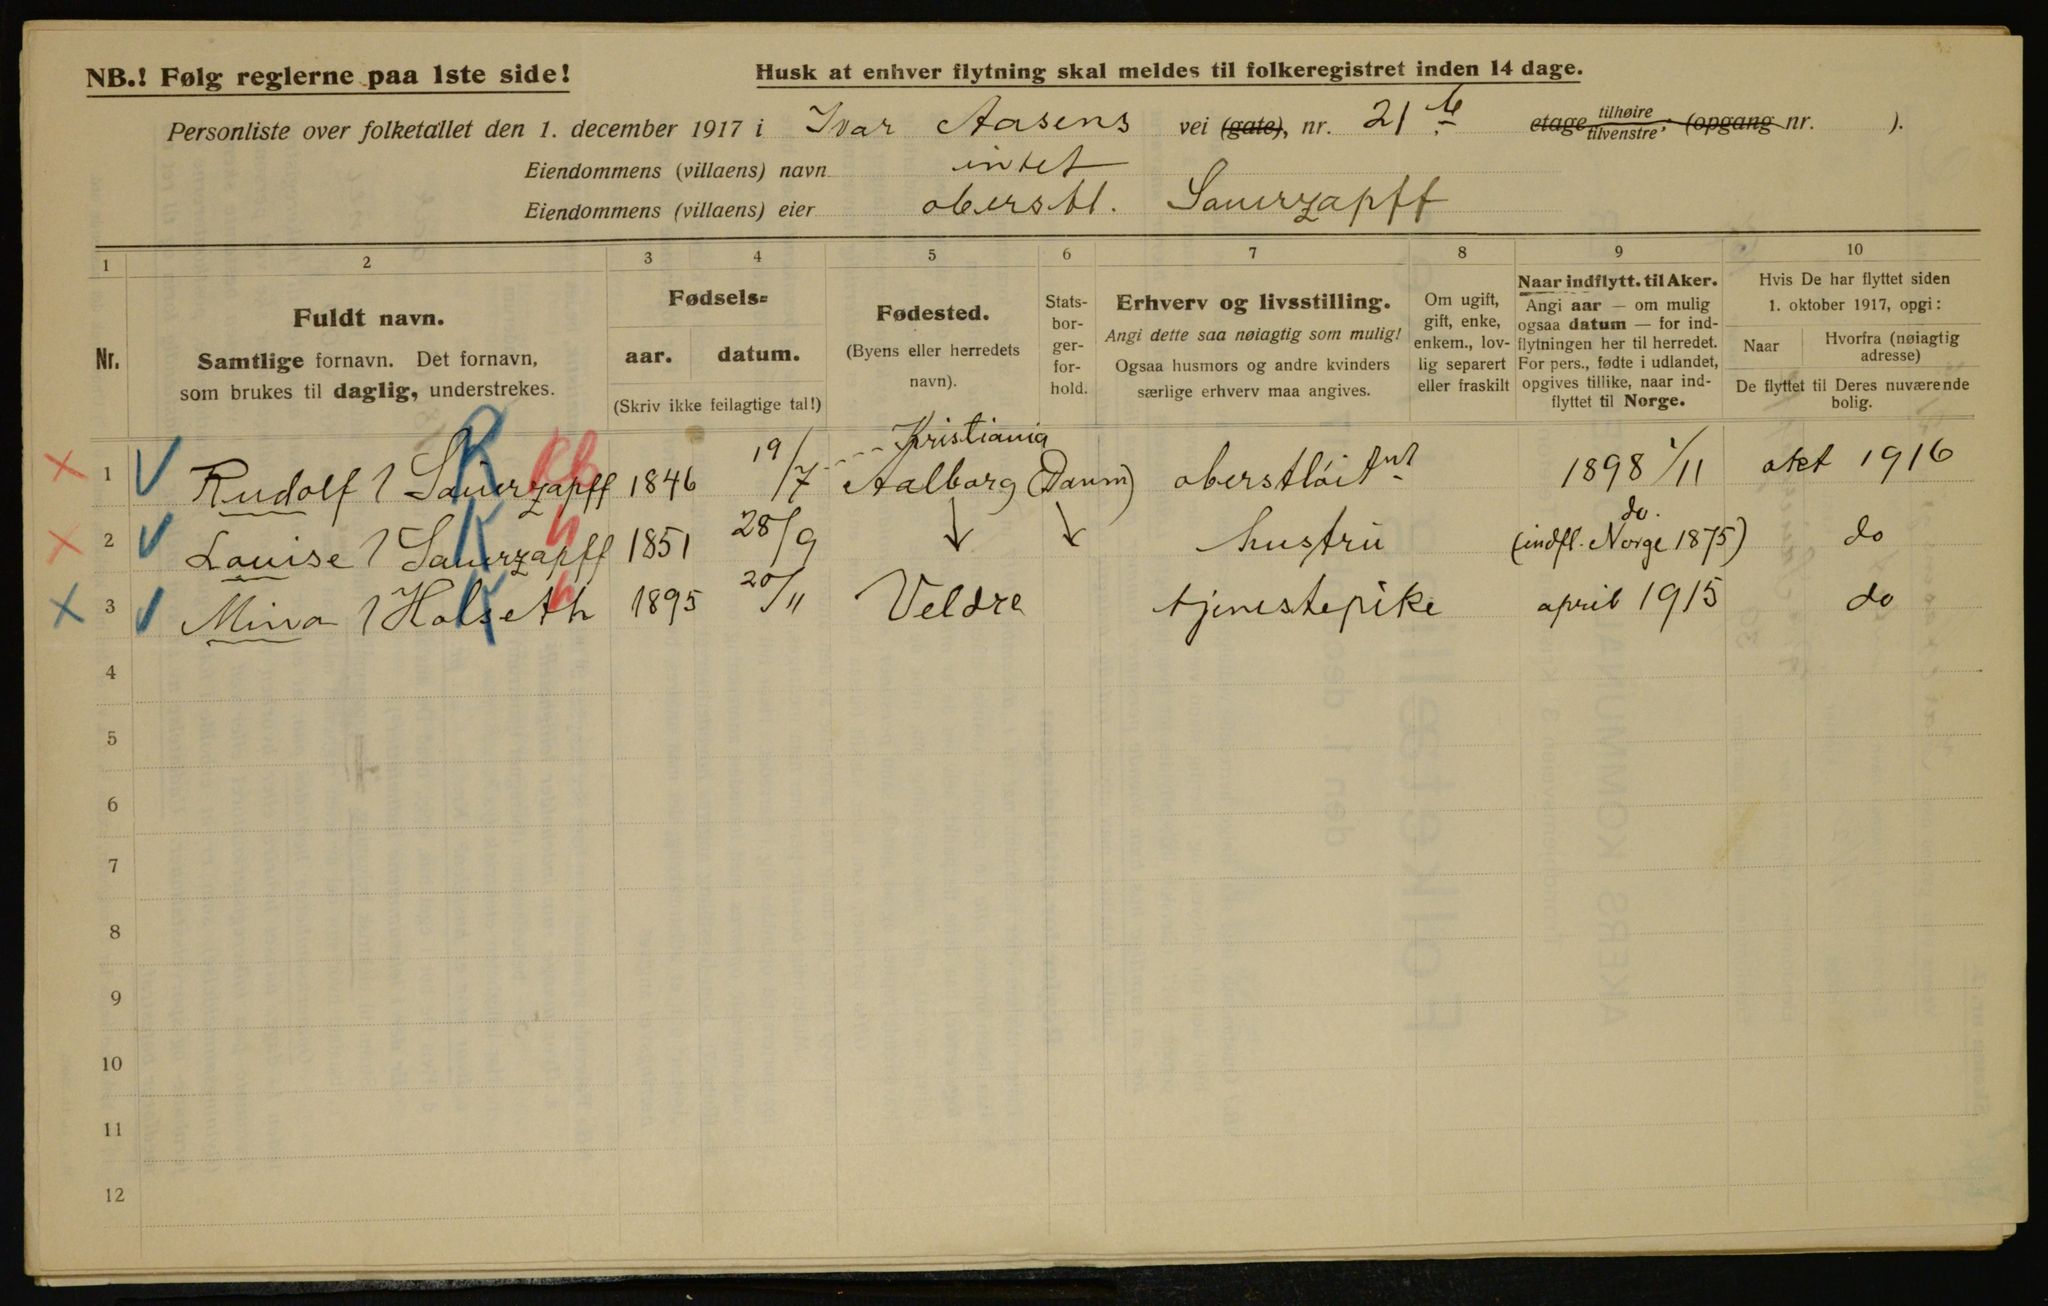 NB.! Følg reglerne paa 1ste side!
Husk at enhver flytning skal meldes til folkeregistret inden 14 dage.
Personliste over folketallet den 1. december 1917 i Ivar Aasens vei (gate), nr. 21 b etage tilhøire/tilvenstre, (opgang nr. ).
Eiendommens (villaens) navn intet
Eiendommens (villaens) eier oberstl. Sauerzapff
1 2 3 4 5 6 7 8 9 10
Nr.
Fuldt navn.
Samtlige fornavn. Det fornavn,
som brukes til daglig, understrekes.
Fødsels=
aar. datum.
(Skriv ikke feilagtige tal!)
Fødested.
(Byens eller herredets
navn).
Stats-
bor-
ger-
for-
hold.
Erhverv og livsstilling.
Angi dette saa nøiagtig som mulig!
Ogsaa husmors og andre kvinders
særlige erhverv maa angives.
Om ugift,
gift, enke,
enkem., lov-
lig separert
eller fraskilt
Naar indflytt. til Aker.
Angi aar — om mulig
ogsaa datum — for ind-
flytningen her til herredet.
For pers., fødte i udlandet,
opgives tillike, naar ind-
flyttet til Norge.
Hvis De har flyttet siden
1. oktober 1917, opgi:
Naar
Hvorfra (nøiagtig
adresse)
De flyttet til Deres nuværende
bolig.
Kristiania
1 Rudolf Sauerzapff 1846 19/7 Aalborg (Danm) oberstløitnt 1898 1/11 okt 1916
do.
2 Louise Sauerzapff 1851 28/9 hustru (indfl. Norge 1875) do
3 Mina Holseth 1895 20/11 Veldre tjenestepike april 1915 do
4
5
6
7
8
9
10
11
12